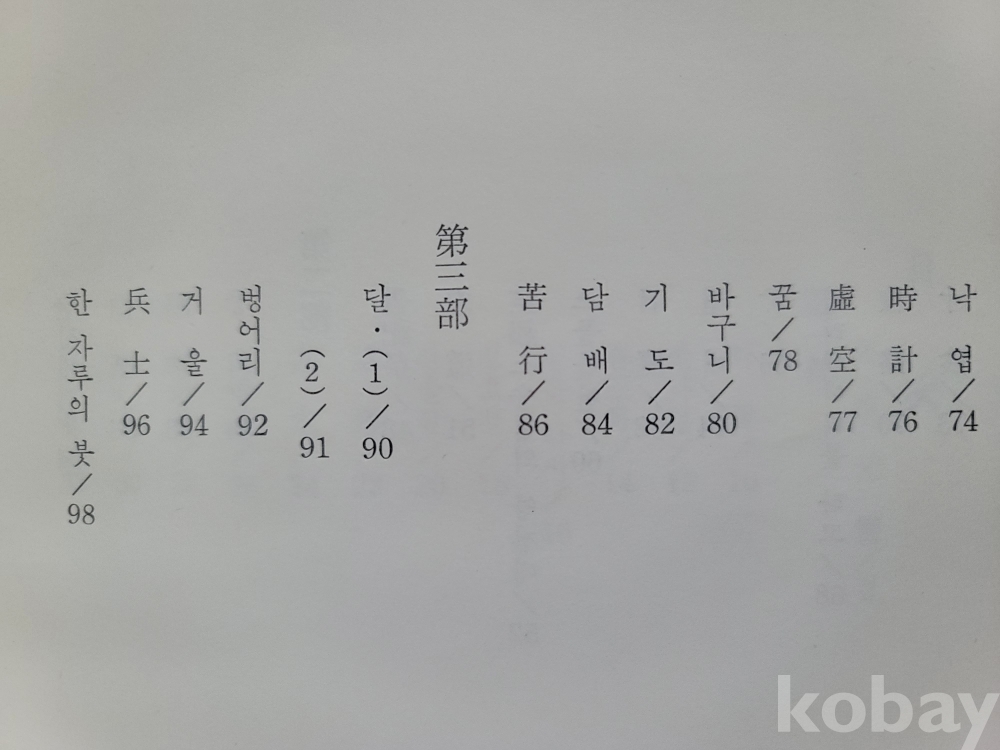 낙엽/74
時計/76
虛空/77
꿈/78
바구니/80
기도/82
담배/84
苦行/86
第三部
달·(1)/90
(2)/91
벙어리/92
거울/94
兵士/96
한 자루의 붓/98
kobay